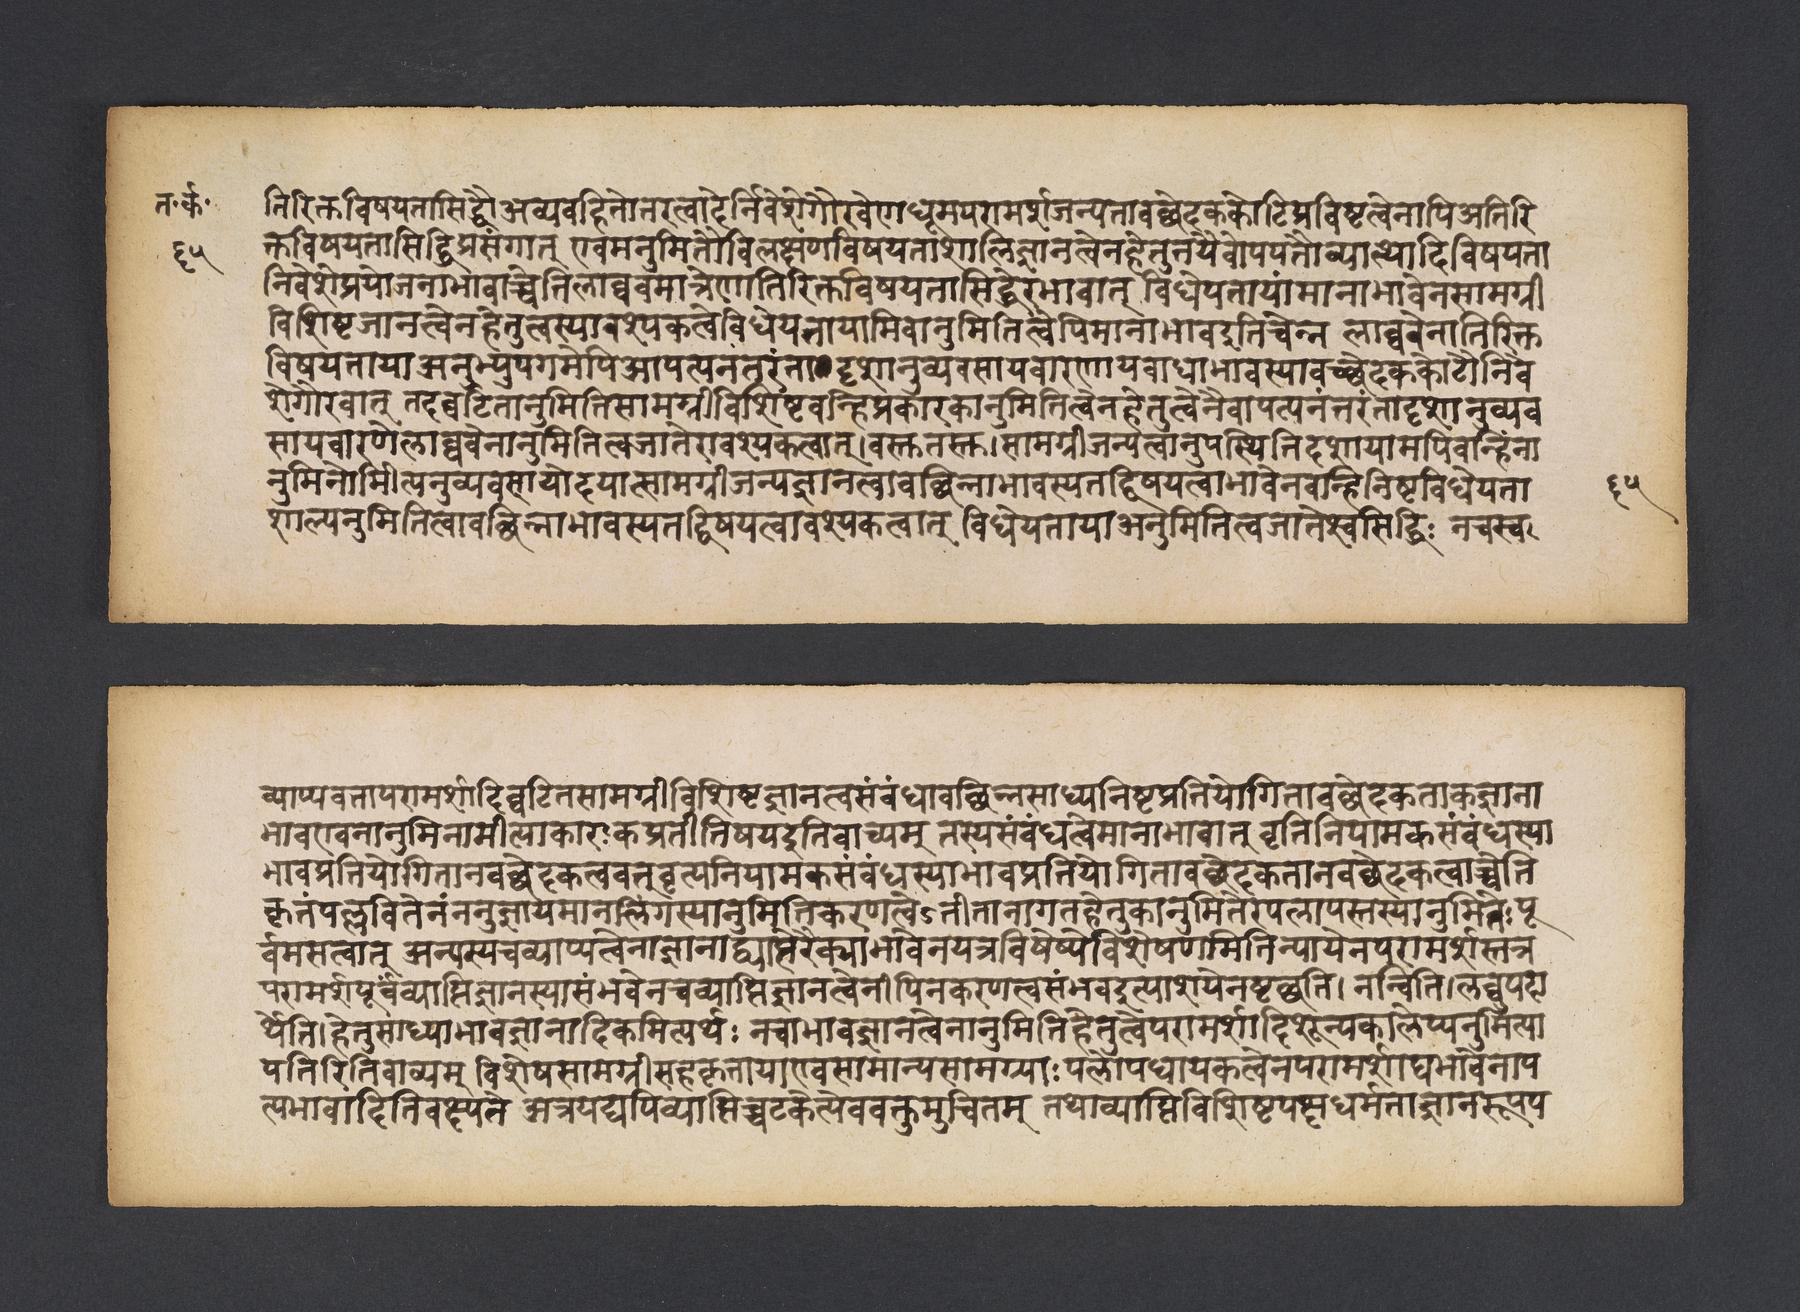 त॰र्क॰
६५
तिरिक्तविषयतासिद्धौअव्यवहितोत्तरत्वादेर्निवेशेगौरवेणधूमपरामर्शजन्यतावच्छेदककोटिप्रविष्टत्वेनापिअतिरि
क्तविषयतासिद्धिप्रसंगात् एवमनुमितौविलक्षणविषयताशालिज्ञानत्वेनहेतुनयैवोपपत्तौव्याप्त्यादिविषयता
निवेशेप्रयोजनाभावाच्चेतिलाघवमात्रेणातिरिक्तविषयतासिद्धेरभावात् विधेयतायांमानाभावेनसामग्री
विशिष्टजानत्वेनहेतुत्वस्यावश्यकत्वेविधेयतायामिवानुमितित्वेपिमानाभावदुतिचेन्न लाघवेनातिरिक्त
विषयतायाअनुभ्युपगमेपिआपत्त्यनंतरंतादृशानुव्यवसायवारणायबाधाभावस्यावच्छेदककोटौनिवे
शेगौरवात् तदघटितानुमितिसामग्रीविशिष्टवन्हिप्रकारकानुमितित्वेनहेतुत्वेनैवापत्त्यनंतरंतादृशानुव्यव
सायवारणेलाघवेनानुमितित्वजातेरावश्यकत्वात्।वस्तुतस्तु।सामग्रीजन्यत्वानुपस्थितिदशायामपिवन्हिंना
नुमिनोमीत्यनुव्यवसायोदयात्सामग्रीजन्यज्ञानत्वावच्छिन्नाभावस्यतद्विषयत्वाभावेनवन्हिनिष्टविधेयता
शाल्यनुमितित्वावच्छिन्नाभावस्यतद्विषयत्वावश्यकत्वात् विधेयतायाअनुमितित्वजातेश्चसिद्धिः नचस्व
६५
व्याप्यवत्तापरामर्शादिघटितसामग्रीविशिष्टज्ञानत्वसंबंधावच्छिन्नसाध्यनिष्टप्रतियोगितावच्छेदकताकज्ञाना
भावएवनानुमिनामीत्याकारकप्रतीतिषयदुतिवाच्यम् तस्यसंबंधत्वेमानाभावात् वृत्तिनियामकसंबंधस्या
भावप्रतियोगितानवच्छेदकत्ववत्वृत्यनियामकसंबंधस्याभावप्रतियोगितावच्छेदकतानवच्छेदकत्वाच्चेति
कृतंपल्लवितेनंननुज्ञायमानलिंगस्यानुमितिकरणत्वेऽतीतानागतहेतुकानुमितेरपलापस्तस्यानुमितेःपू
र्वमसत्वात् अन्यस्यचव्याप्यत्वेनाज्ञानाद्व्याप्तेरैक्याभावेनयत्रविषेष्येविशेषणमितिन्यायेनपरामर्शस्तत्र
परामर्शपूर्वंव्याप्तिज्ञानस्यासंभवेनचव्याप्तिज्ञानत्वेनीपिनकरणत्वसंभवदुत्याशयेनष्टच्छति। नन्विति।लघुपदा
र्थेति।हेतुसाध्याभावज्ञानादिकमित्यर्थः नचाभावज्ञानत्वेनानुमितिहेतुत्वेपरामर्शादिशून्यकालेप्यनुमित्या
पत्तिरितिवाच्यम् विशेषसामग्रीसहकृतायाएवसामान्यसामग्र्याःफलोपधायकत्वेनपरामर्शाघभावेनाप
त्यभावादितिवक्ष्यते अत्रयद्यपिव्याप्तिघटकेत्येववक्तुमुचितम् तथाव्याप्तिविशिष्टपक्षधर्मताज्ञानरूपप